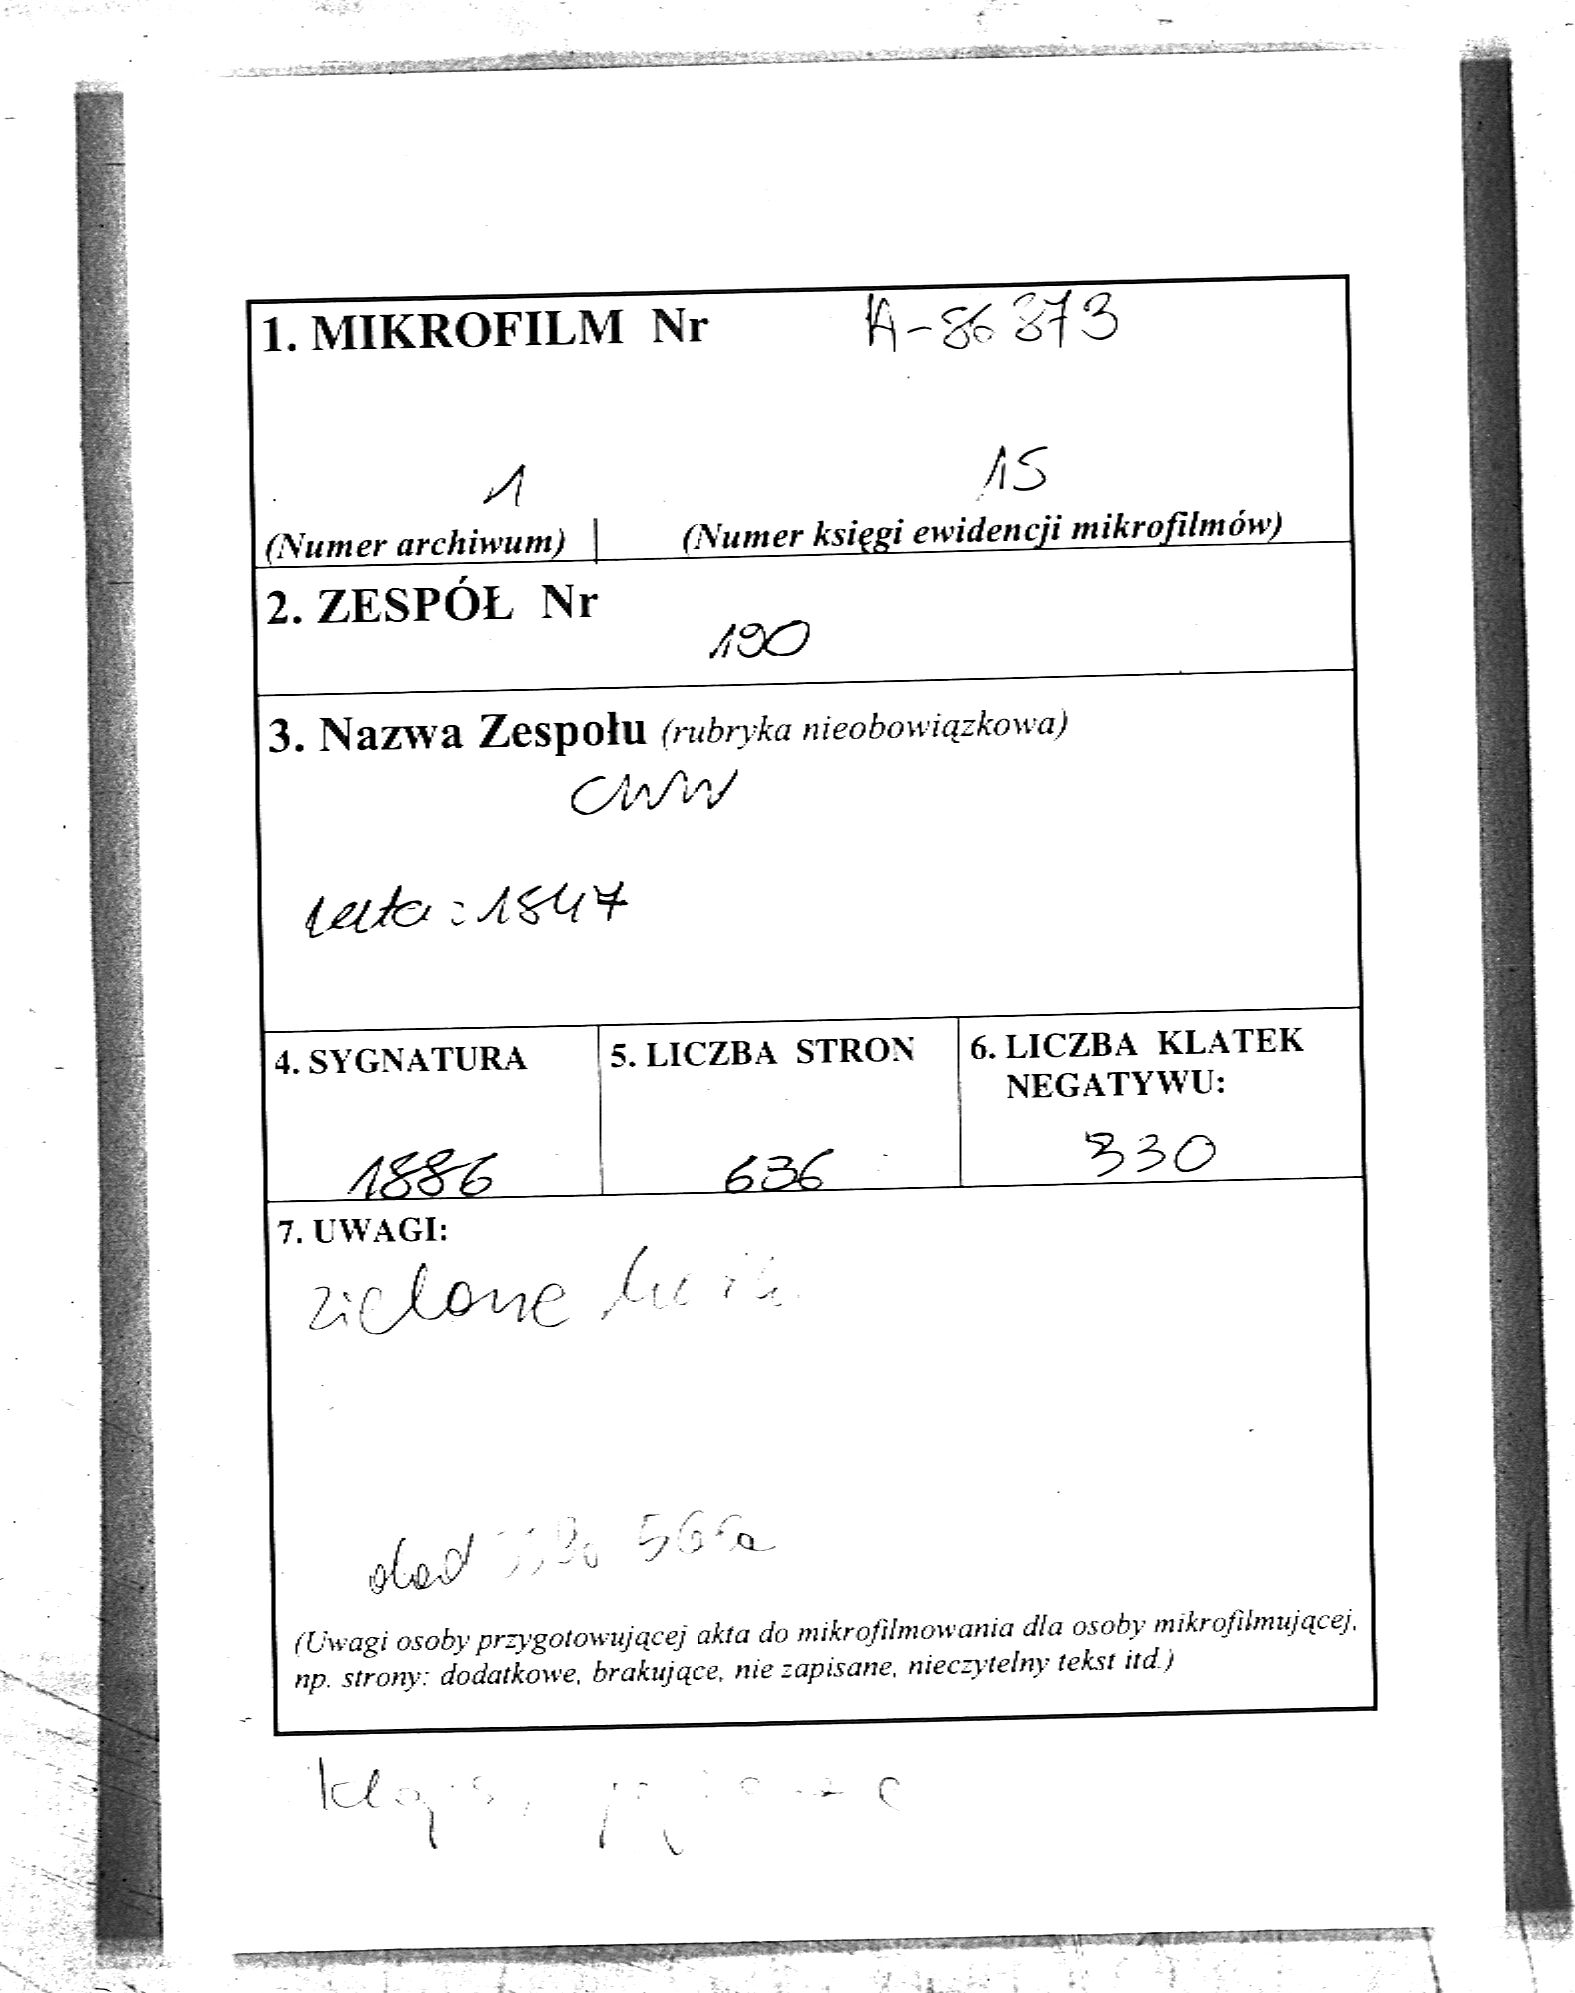 1. MIKROFILM Nr A-86 873
1 15
(Numer archiwum) (Numer księgi ewidencji mikrofilmów)
2. ZESPÓŁ Nr
190
3. Nazwa Zespołu (rubryka nieobowiązkowa)
CWW
lata: 1847
4. SYGNATURA 5. LICZBA STRON 6. LICZBA KLATEK
NEGATYWU:
1886 636 330
7. UWAGI:
zielone
dod
(Uwagi osoby przygotowującej akta do mikrofilmowania dla osoby mikrofilmującej,
np. strony: dodatkowe, brakujące, nie zapisane, nieczytelny tekst itd.)